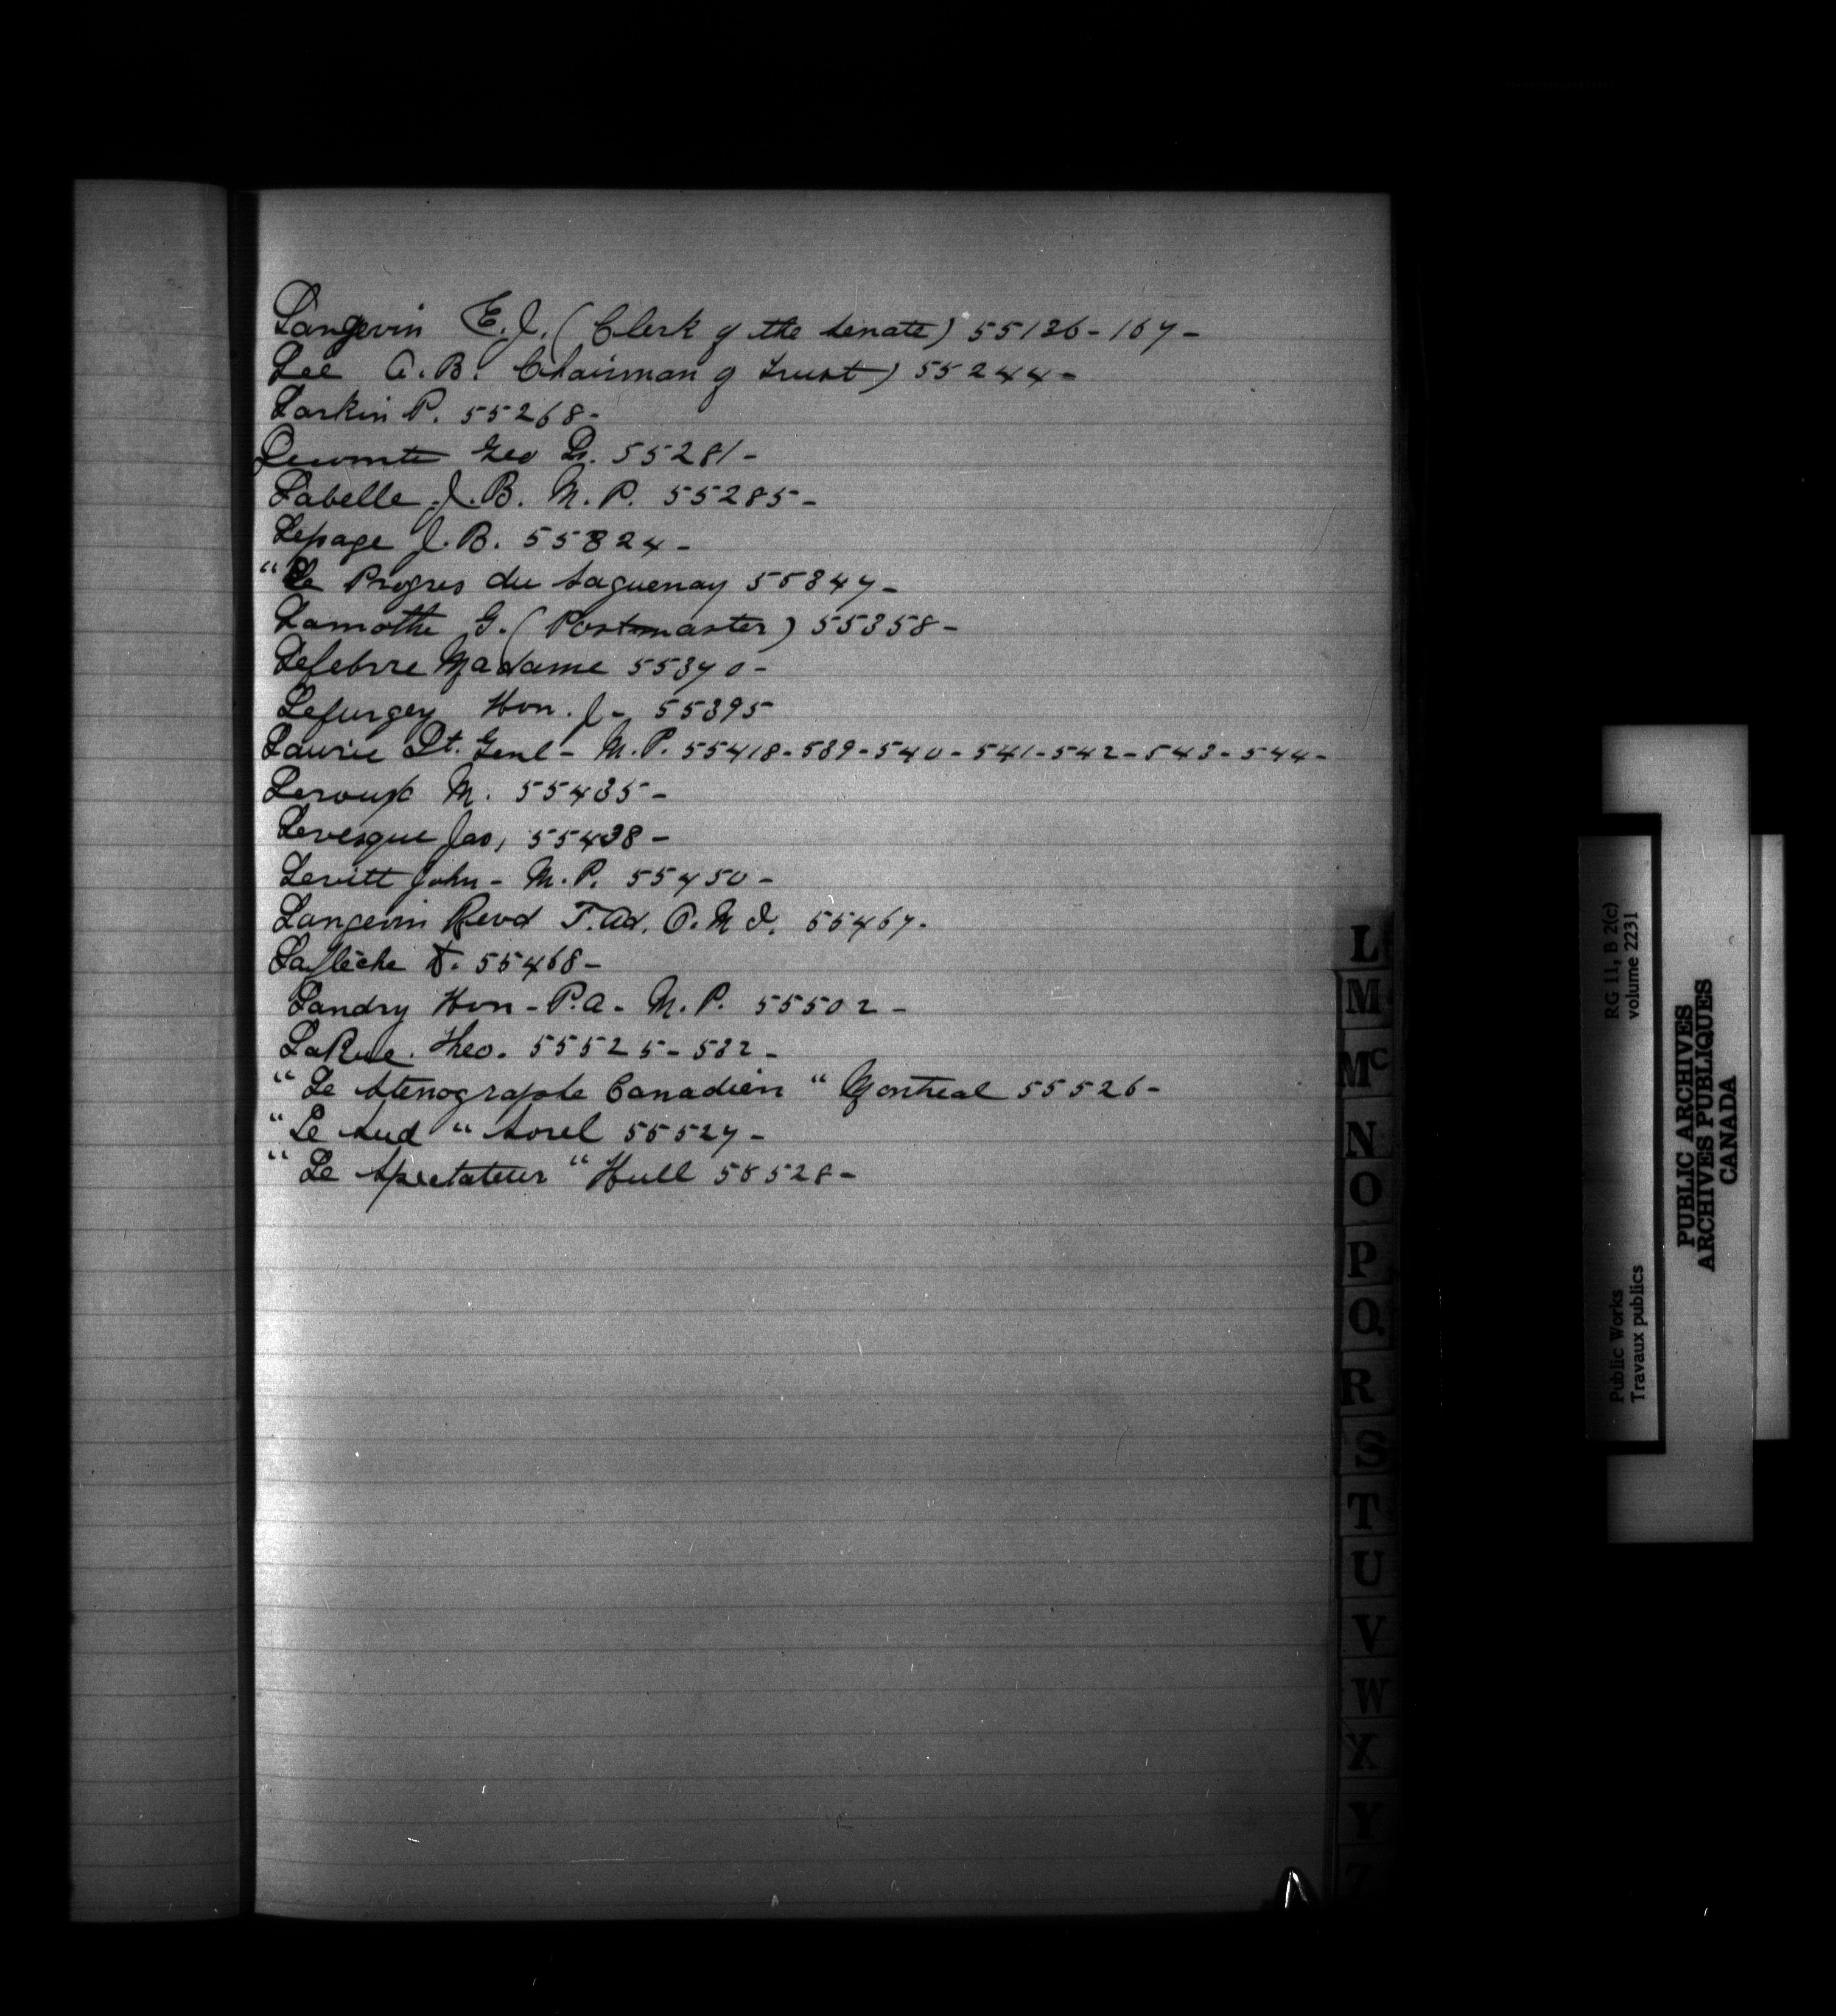 Langevin E.J. (Clerk of the Senate) 55136-167-
Lee A.B. (Chairman of Trust) 55244-
Larkin P. 55268-
Lecomte Geo 55281-
Labelle J.B. M.P. 55285-
Lepage J.B. 55324-
"Le Progres du Saguenay 55347-
Lamothe G. (Postmaster) 55358-
Lefebvre Madame 55370-
Lefurgey Hon. J- 55395
Laurie Lt. Genl- M.P. 55418-539-540-541-542-543-544-
Leroux M. 55435-
Levesque Jas, 55438-
Levitt John- M.P. 55450-
Langevin Revd F.Ad. O.M.I. 55467-
Laflèche 55468-
Landry Hon-P.A- M.P. 55502-
LaRue. Theo. 55525-532-
"Le Stenographe Canadien" Montreal 55526-
"Le Sud" Sorel 55527-
"Le Spectateur" Hull 55528-
L
M
Mc
N
O
P
Q
R
S
T
U
V
W
X
Y
Z
RG 11, B 2(c)
volume 2231
Public Works
Travaux publics
PUBLIC ARCHIVES
ARCHIVES PUBLIQUES
CANADA